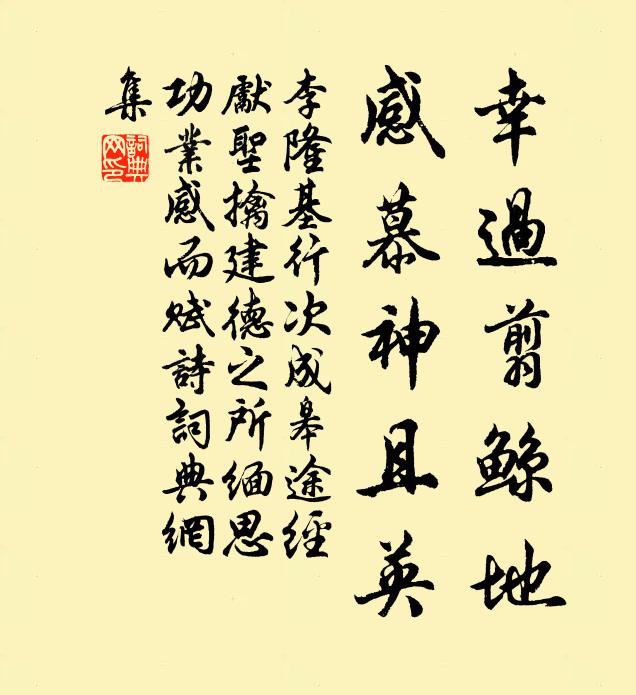 幸過翦鲸地
感慕神且英
李隆基行次成皋途經
獻聖擒建德之所緬思
功業感而赋詩詞典網
集
詞典网印